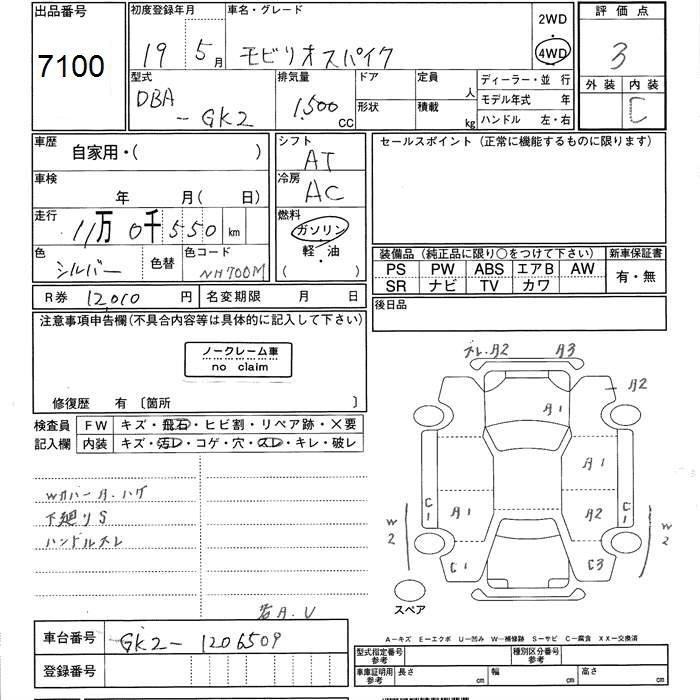 出品番号 初度登録年月 車名・グレード 2WD 評価点
7100 19年 5月 モビリオスパイク 4WD 3
型式 排気量 ドア 定員 人 ディーラー・並 行 外装 内装
DBA -GK2 1,500 CC 形状 積載 kg モデル年式 年 C
ハンドル 左・右
車歴 自家用・( ) シフト AT セールスポイント (正常に機能するものに限ります)
車検 年 月( 日) 冷房 AC
走行 11万 0千 550 km 燃料 ガソリン
軽・油
( )
色 シルバー 色替 色コード NH700M
装備品 (純正品に限り○をつけて下さい) 新車保証書
PS PW ABS エアB AW 有・無
SR ナビ TV カワ
R券 12,010 円 名変期限 月 日 後日品
注意事項申告欄(不具合内容等は具体的に記入して下さい)
ノークレーム車
no claim
修復歴 有 〔箇所 〕
検査員 FW キズ・飛石・ヒビ割・リペア跡・X要
記入欄 内装 キズ・汚レ・コゲ・穴・スレ・キレ・破レ
Wカバー A.ハゲ
下廻りS
ハンドルスレ
若A.U
スレ.A2 A3
A2
A1
A1
C1 A1 A2 C1
W2 W2
C1 C3
スペア
A-キズ E-エクボ U-凹み W-補修跡 S-サビ C-腐食 XX-交換済
車台番号 GK2-1206509
登録番号
型式指定番号 参考 種別区分番号 参考
車庫証明用 参考 長さ cm 幅 cm 高さ cm